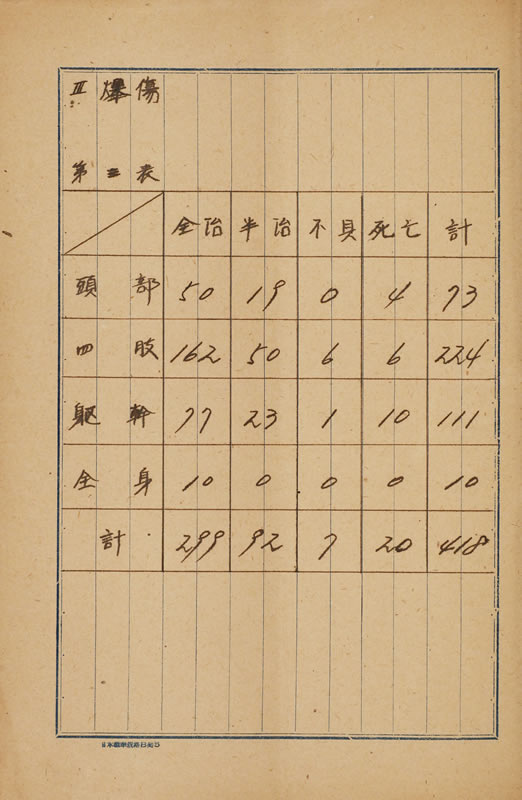 Ⅲ 爆傷
第三表
全治 半治 不具 死亡 計
頭部 50 19 0 4 73
四肢 162 50 6 6 224
躯幹 77 23 1 10 111
全身 10 0 0 0 10
計 299 92 7 20 418